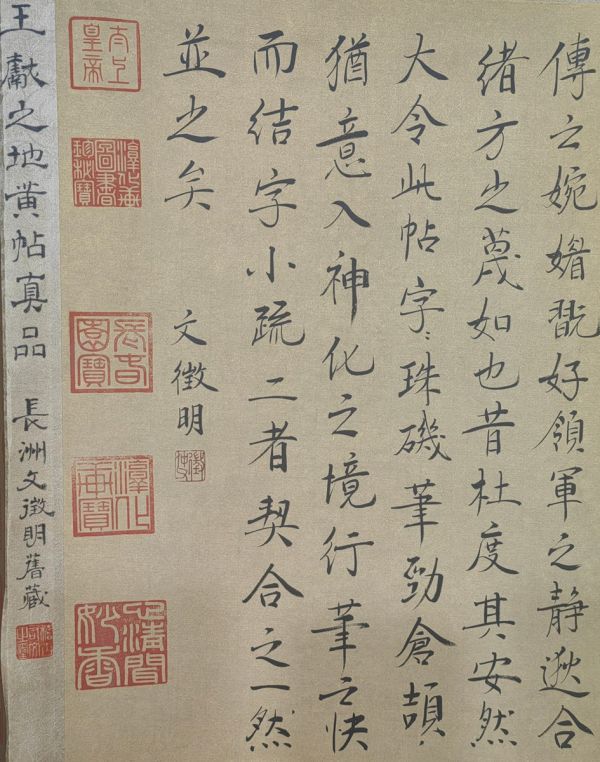 傳之婉媚翫好領軍之靜遬合
緒方之蔑如也昔杜度其安然
大令此帖字〻珠磯筆勁倉頡
猶意入神化之境行筆之快
而结字小疏二者契合之一然
並之矣
文徵明
太上皇帝
淳化軒圖書珍秘寶
長春園寶
淳化軒寶
王獻之地黄帖真品
長洲文徵明舊藏